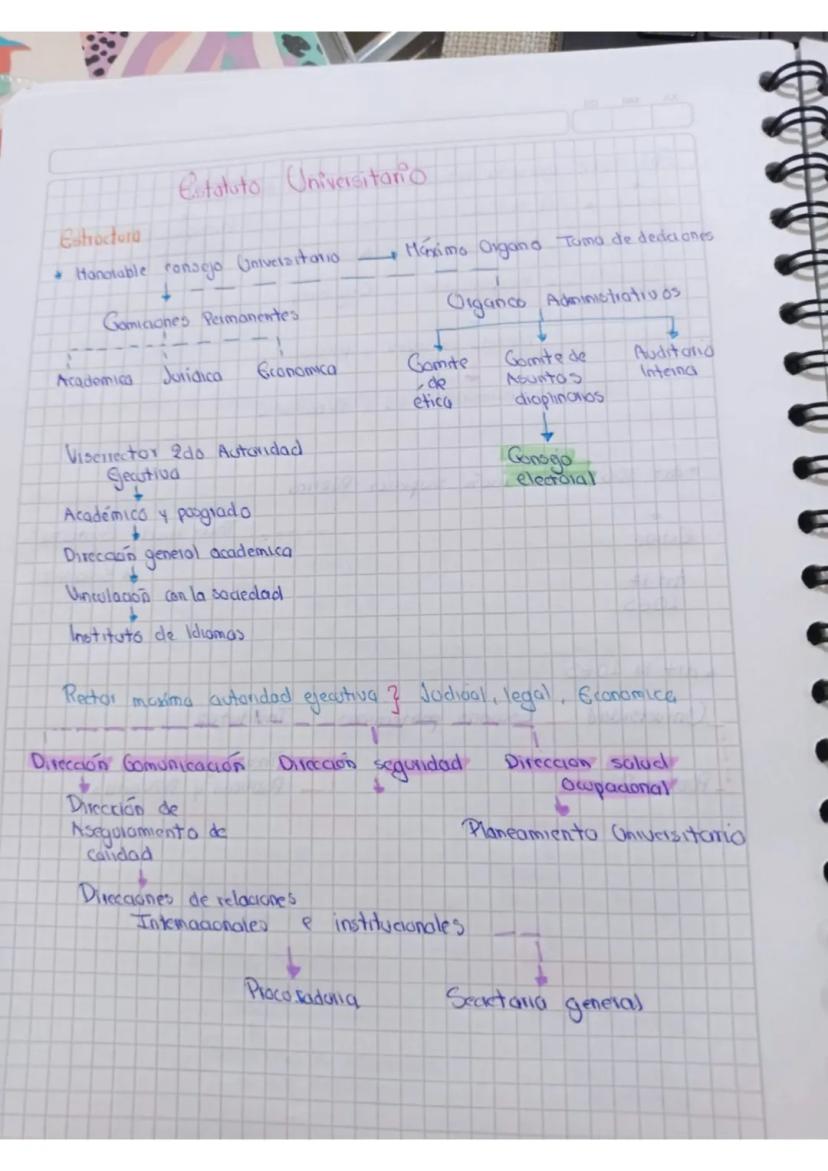 Estatuto Universitario
Estructura
* Honorable consejo Universitario → Máximo Organo Toma de deciciones
Comiciones Permanentes
Organos Administrativos
Academica Juridica Economica
Comite de ética
Comite de Asuntos diciplinarios
Auditoria Interna
Consejo electoral
Viserrector 2do Autoridad
Ejecutiva
Académico y posgrado
Dirección general academica
Vinculación con la sociedad
Instituto de Idiomas
Rector maxima autoridad ejecutiva } Judicial, legal, Economica
Dirección Comunicación Dirección seguridad Direccion salud
Ocupacional
Dirección de
Aseguramiento de
calidad
Planeamiento Universitario
Direcciones de relaciones
Internacionales e institucionales
Procuraduria Secretaria general